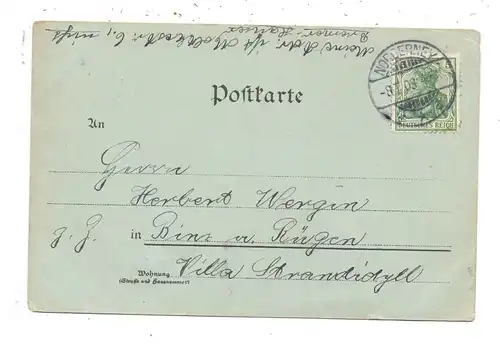 Meine Adr. ist Moltkestr. 6, nicht
Bremer-Häuser
NORDERNEY
DEUTSCHES REICH
Postkarte
An
Herrn
Herbert Wergin
z. Z. in Binz a. Rügen
Wohnung
(Straße und Hausnummer)
Villa Strandidyll